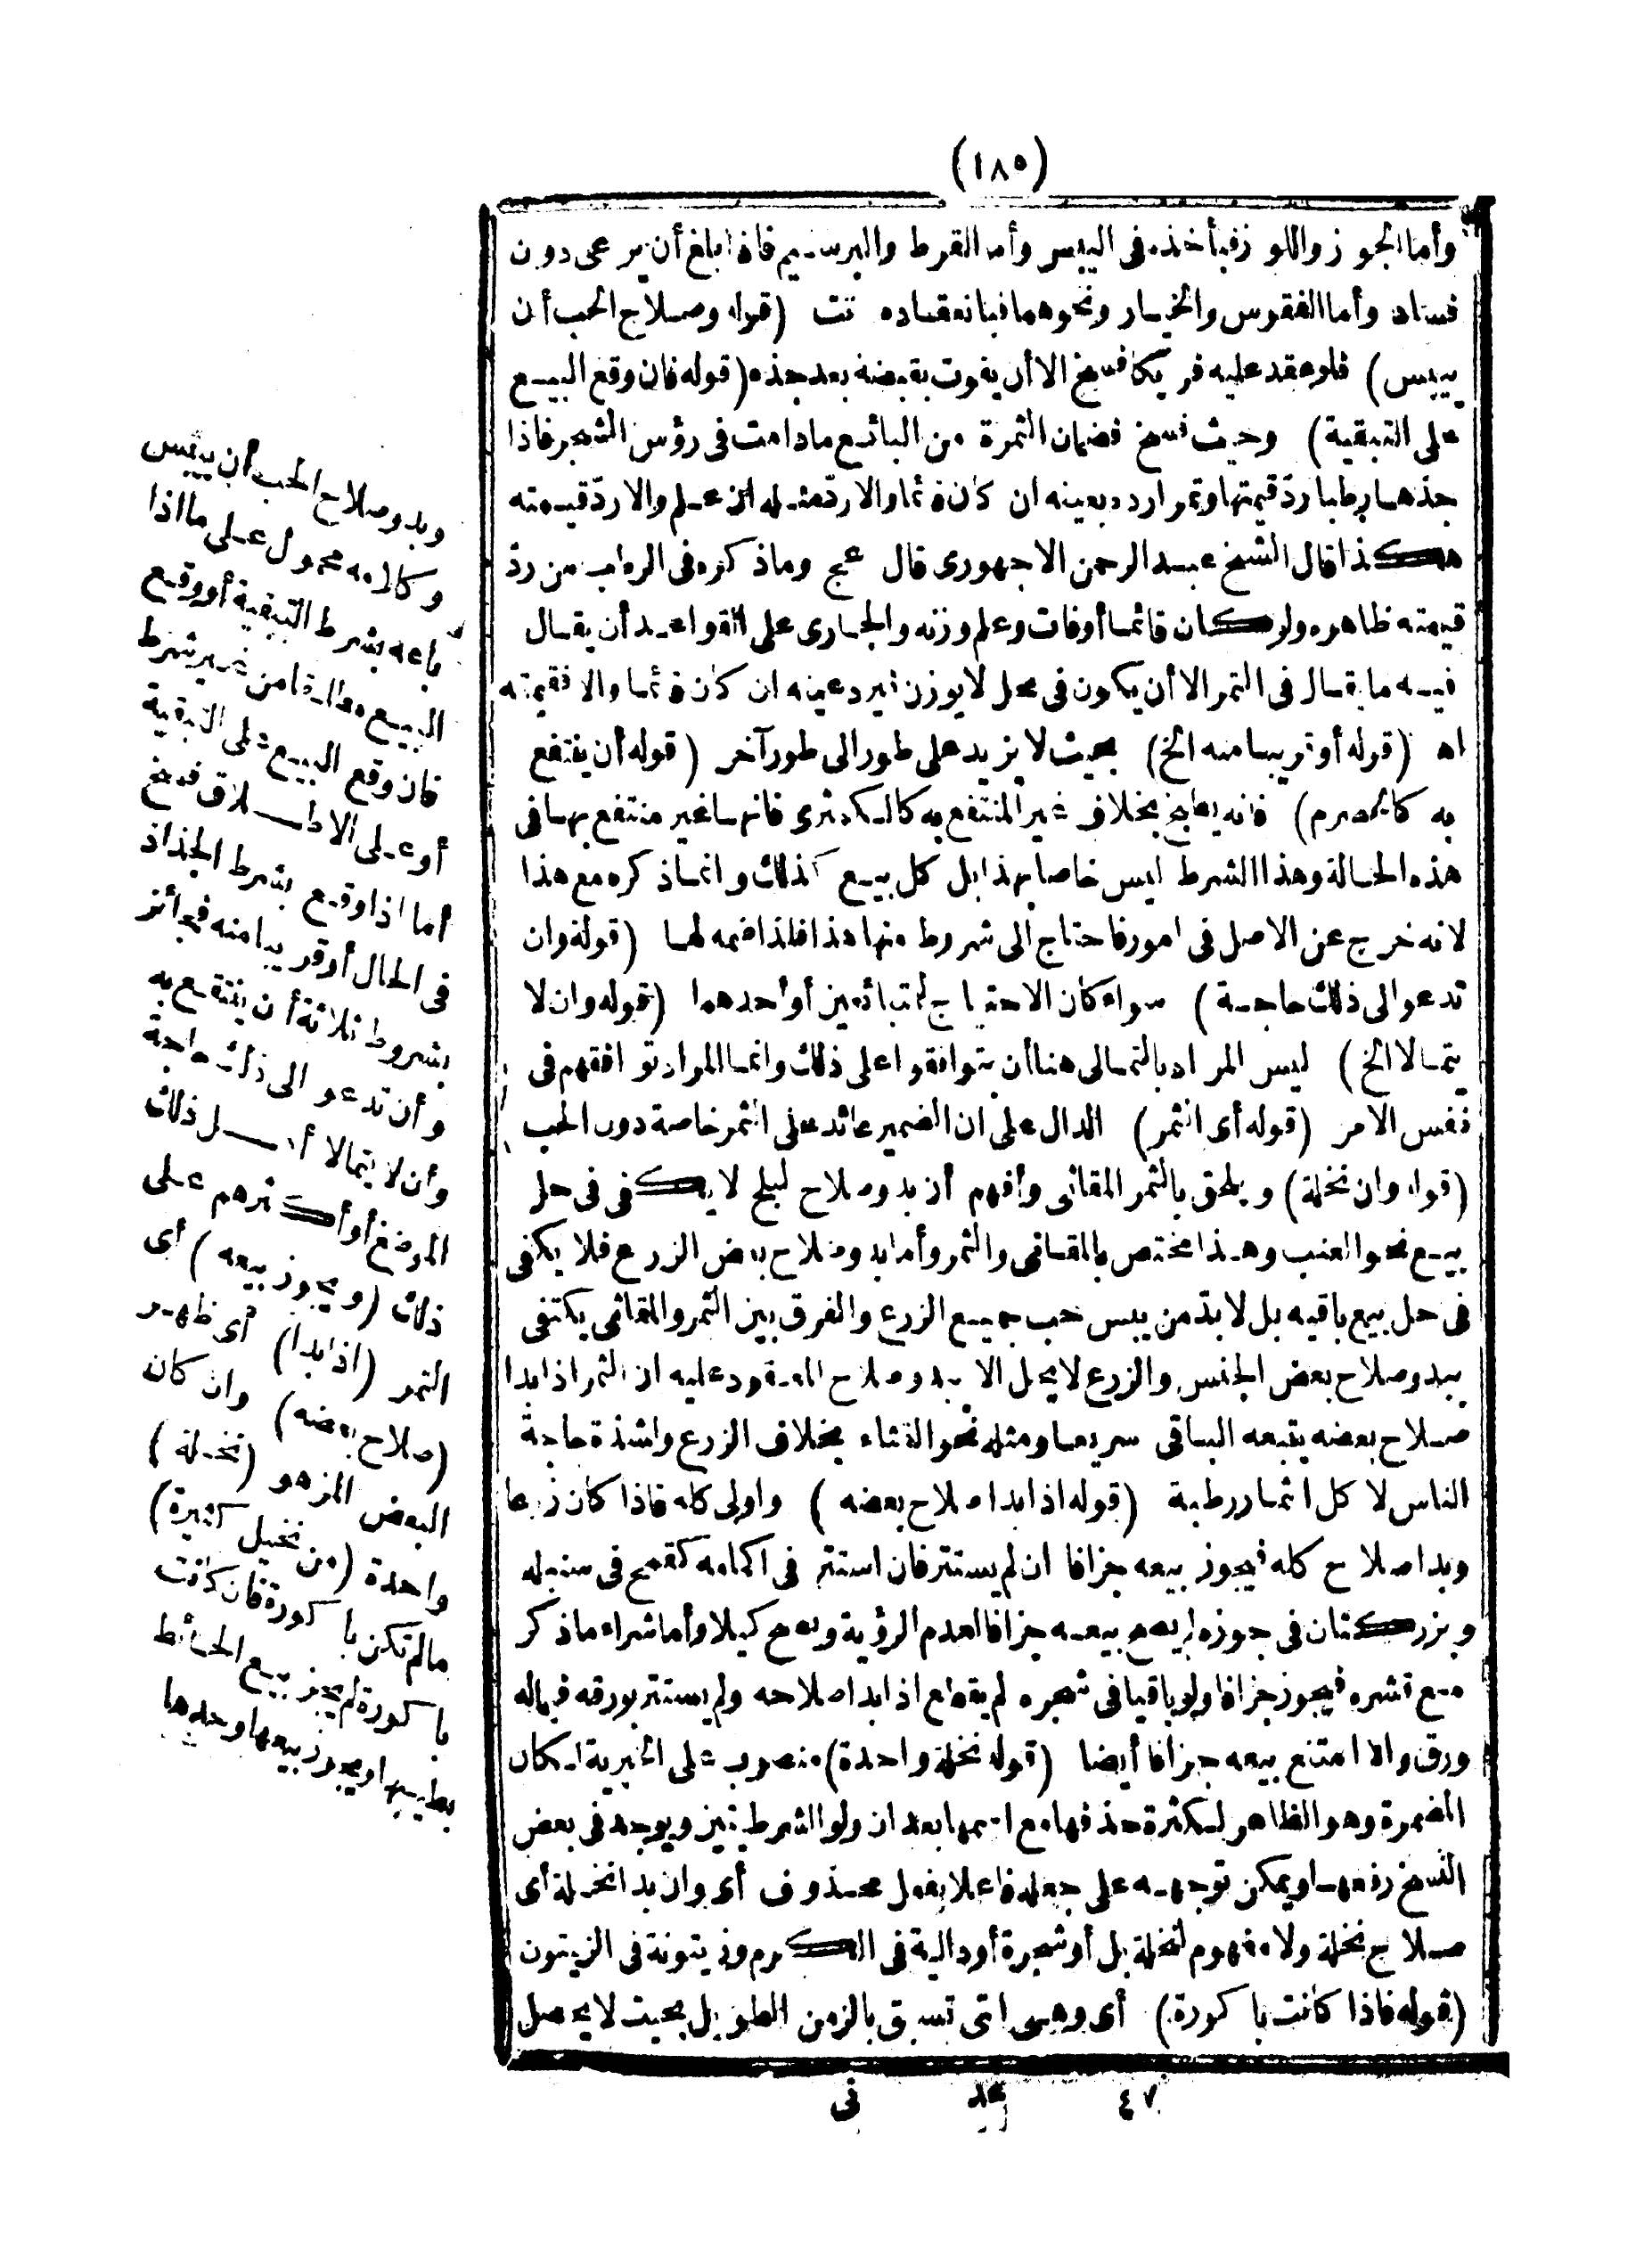 (١٨٥)
وأما الجوز واللوز فبأخذه فى اليبس وأما القرط والبرسيم فاذا بلغ أن يرعى دون
فساد وأما الفقوس والخيار ونحوهما فبانعقاده تت (قوله وصلاح الحب أن
ييبس) فلو عقد عليه فريكا فسخ الا أن يفوت بقبضه بعد جذه (قوله فان وقع البيع
على التبقية) وحيث فسخ فضمان الثمرة من البائع مادامت فى رؤس الشجر فاذا
جذها رطبا ردّ قيمتها وتمرا رده بعينه ان كان قائما والا ردّ مثله ان علم والا ردّ قيمته
هكذا قال الشيخ عبد الرحمن الاجهورى قال عج وما ذكره فى الرطب من ردّ
قيمته ظاهره ولو كان قائما أوفات وعلم وزنه والجارى على القواعد أن يقال
فيه ما يقال فى التمر الا أن يكون فى محل لا يوزن فيرد عينه ان كان قائما والا فقيمته
اه (قوله أو قريبا منه الخ) بحيث لا يزيد على طور الى طور آخر (قوله أن ينتفع
به كالحصرم) فانه يطبخ بخلاف غير المنتفع به كالكمثرى فانها غير منتفع بها فى
هذه الحالة وهذا الشرط ليس خاصا بهذا بل كل بيع كذلك وانما ذكره مع هذا
لانه خرج عن الاصل فى امور فاحتاج الى شروط منها هذا فلذا ضمه لها (قوله وان
تدعو الى ذلك حاجة) سواء كان الاحتياج للمتبائعين أو أحدهما (قوله وان لا
يتمالا الخ) ليس المراد بالتمالى هنا أن يتوافقوا على ذلك وانما المراد توافقهم فى
نفس الامر (قوله أى الثمر) الدال على ان الضمير عائد على الثمر خاصة دون الحب
(قوله وان نخلة) ويلحق بالثمر المقاثى وأفهم أن بدو صلاح البلح لا يكفى فى حل
بيع نحو العنب وهذا مختص بالمقاثى والثمر وأما بدو صلاح بعض الزرع فلا يكفى
فى حل بيع باقيه بل لا بدّ من يبس حب جميع الزرع والفرق بين الثمر والمقاثى يكتفى
ببدو صلاح بعض الجنس والزرع لا يحل الا ببدو صلاح المعقود عليه ان الثمر اذا بدا
صلاح بعضه يتبعه الباقى سريعا ومثله نحو القثاء بخلاف الزرع ولشدة حاجة
الناس لا كل الثمار رطبة (قوله اذا بدا صلاح بعضه) واولى كله فاذا كان زرعا
وبدا صلاح كله فيجوز بيعه جزافا ان لم يستتر فان استتر فى اكمامه كقمح فى سنبله
وبزر كتان فى جوزه لم يصح بيعه جزافا لعدم الرؤية ويصح كيلا وأما شراء ما ذكر
مع قشره فيجوز جزافا ولو باقيا فى شجره لم يقطع اذا بدا صلاحه ولم يستتر بورقه فيما له
ورق والا امتنع بيعه جزافا أيضا (قوله نخلة واحدة) منصوب على الخبرية لكان
المضمرة وهو الظاهر لكثرة حذفها مع اسمها بعد ان ولو الشرطيتين ويوجد فى بعض
النسخ رفعها ويمكن توجيهه على جعله فاعلا بفعل محذوف أى وان بدا نخلة أى
صلاح نخلة ولا مفهوم لنخلة بل أو شجرة أو دالية فى الكرم وزيتونة فى الزيتون
(قوله فاذا كانت باكورة) أى وهى التى تسبق بالزمن الطويل بحيث لا يحصل
وبدو صلاح الحب أن ييبس
وكلامه محمول على ما اذا
باعه بشرط التبقية أو وقع
البيع مطلقا من غير شرط
فان وقع البيع على التبقية
أو على الاطلاق فسخ
أما اذا وقع بشرط الجذاذ
فى الحال أو قريبا منه فجائز
بشروط ثلاثة أن ينتفع به
وأن تدعو الى ذلك حاجة
وأن لا يتمالا أهل ذلك
الموضع أو أكثرهم على
ذلك (ويجوز بيعه) أى
الثمر (اذا بدا) أى ظهر
(صلاح بعضه) وان كان
البعض المزهو (نخلة)
واحدة (من نخيل كثيرة)
ما لم تكن باكورة فان كانت
باكورة لم يجز بيع الحائط
بطيبها ويجوز بيعها وحدها
٤٧ عد فى